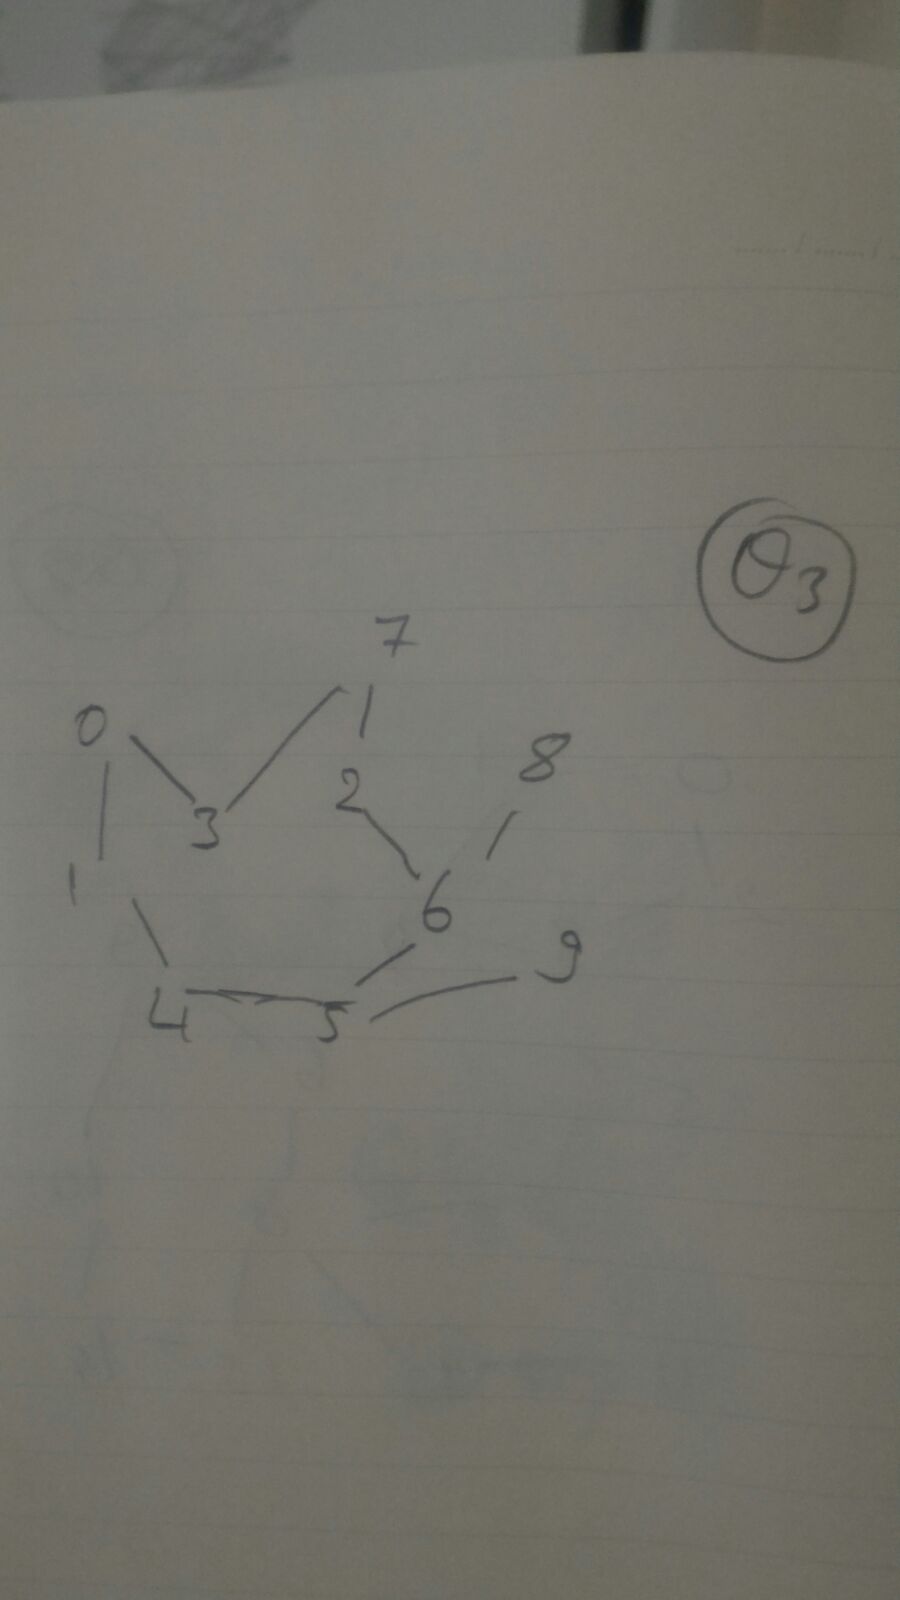 θ3
7
0
8
2
3
1
6
9
4
5